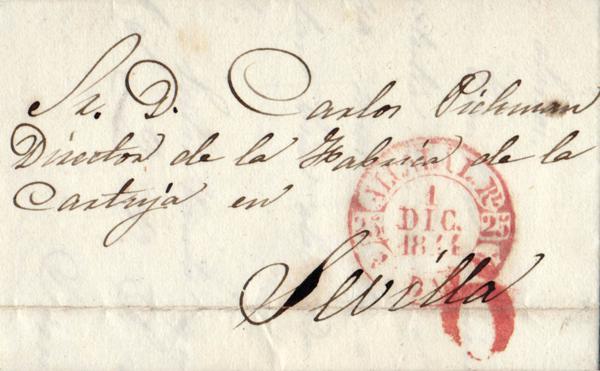 Sr. D. Carlos Pickman
Director de la Fabrica de la
Cartuja en
Sevilla
1
DIC.
1844
25